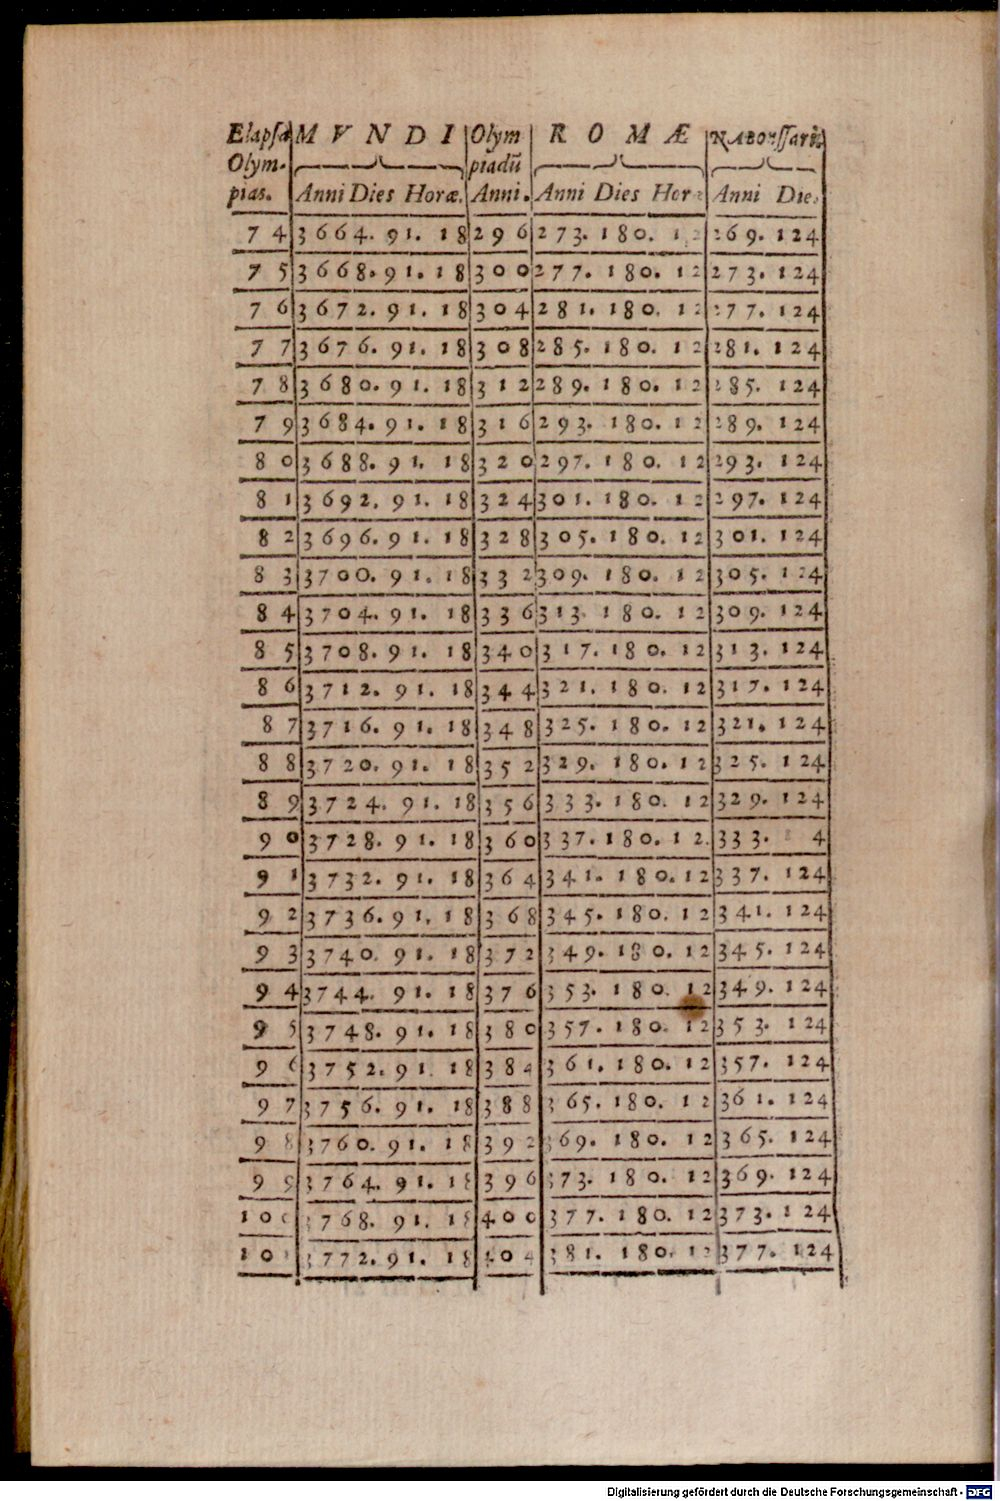 Elapsæ M V N D I Olym R O M Æ NABonssarii
Olym- piadū
pias. Anni Dies Horæ. Anni. Anni Dies Horæ Anni Die.
74 3664. 91. 18 296 273. 180. 12 269. 124
75 3668. 91. 18 300 277. 180. 12 273. 124
76 3672. 91. 18 304 281. 180. 12 277. 124
77 3676. 91. 18 308 285. 180. 12 281. 124
78 3680. 91. 18 312 289. 180. 12 285. 124
79 3684. 91. 18 316 293. 180. 12 289. 124
80 3688. 91. 18 320 297. 180. 12 293. 124
81 3692. 91. 18 324 301. 180. 12 297. 124
82 3696. 91. 18 328 305. 180. 12 301. 124
83 3700. 91. 18 332 309. 180. 12 305. 124
84 3704. 91. 18 336 313. 180. 12 309. 124
85 3708. 91. 18 340 317. 180. 12 313. 124
86 3712. 91. 18 344 321. 180. 12 317. 124
87 3716. 91. 18 348 325. 180. 12 321. 124
88 3720. 91. 18 352 329. 180. 12 325. 124
89 3724. 91. 18 356 333. 180. 12 329. 124
90 3728. 91. 18 360 337. 180. 12. 333. 4
91 3732. 91. 18 364 341. 180. 12 337. 124
92 3736. 91. 18 368 345. 180. 12 341. 124
93 3740. 91. 18 372 349. 180. 12 345. 124
94 3744. 91. 18 376 353. 180. 12 349. 124
95 3748. 91. 18 380 357. 180. 12 353. 124
96 3752. 91. 18 384 361. 180. 12 357. 124
97 3756. 91. 18 388 365. 180. 12 361. 124
98 3760. 91. 18 392 369. 180. 12 365. 124
99 3764. 91. 18 396 373. 180. 12 369. 124
100 3768. 91. 18 400 377. 180. 12 373. 124
101 3772. 91. 18 404 381. 180. 12 377. 124
Digitalisierung gefördert durch die Deutsche Forschungsgemeinschaft - DFG